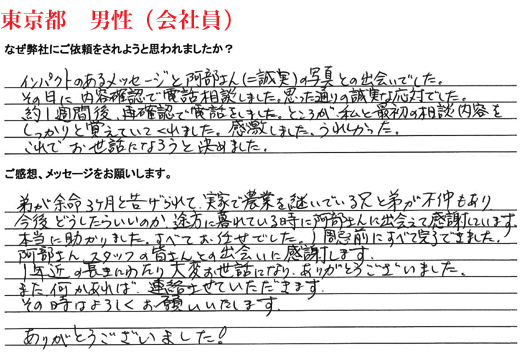 東京都　男性（会社員）
なぜ弊社にご依頼をされようと思われましたか？
インパクトのあるメッセージと阿部さん（＝誠実）の写真との出会いでした。
その日に内容確認で電話相談しました。思った通りの誠実な応対でした。
約１週間後、再確認で電話をしました。ところが私と最初の相談内容を
しっかりと覚えていてくれました。感激しました。うれしかった。
これでお世話になろうと決めました。
ご感想、メッセージをお願いします。
弟が余命3ヶ月と告げられて、実家で農業を継いでいる兄と弟が不仲もあり
今後どうしたらいいのか途方に暮れている時に阿部さんに出会えて感謝しています。
本当に助かりました。すべてお任せでした。１周忌前にすべて完了できました！
阿部さん、スタッフの皆さんとの出会いに感謝します。
１年近の長きにわたり大変お世話になり、ありがとうございました。
また何かあれば、連絡させていただきます。
その時はよろしくお願いいたします。
ありがとうございました！